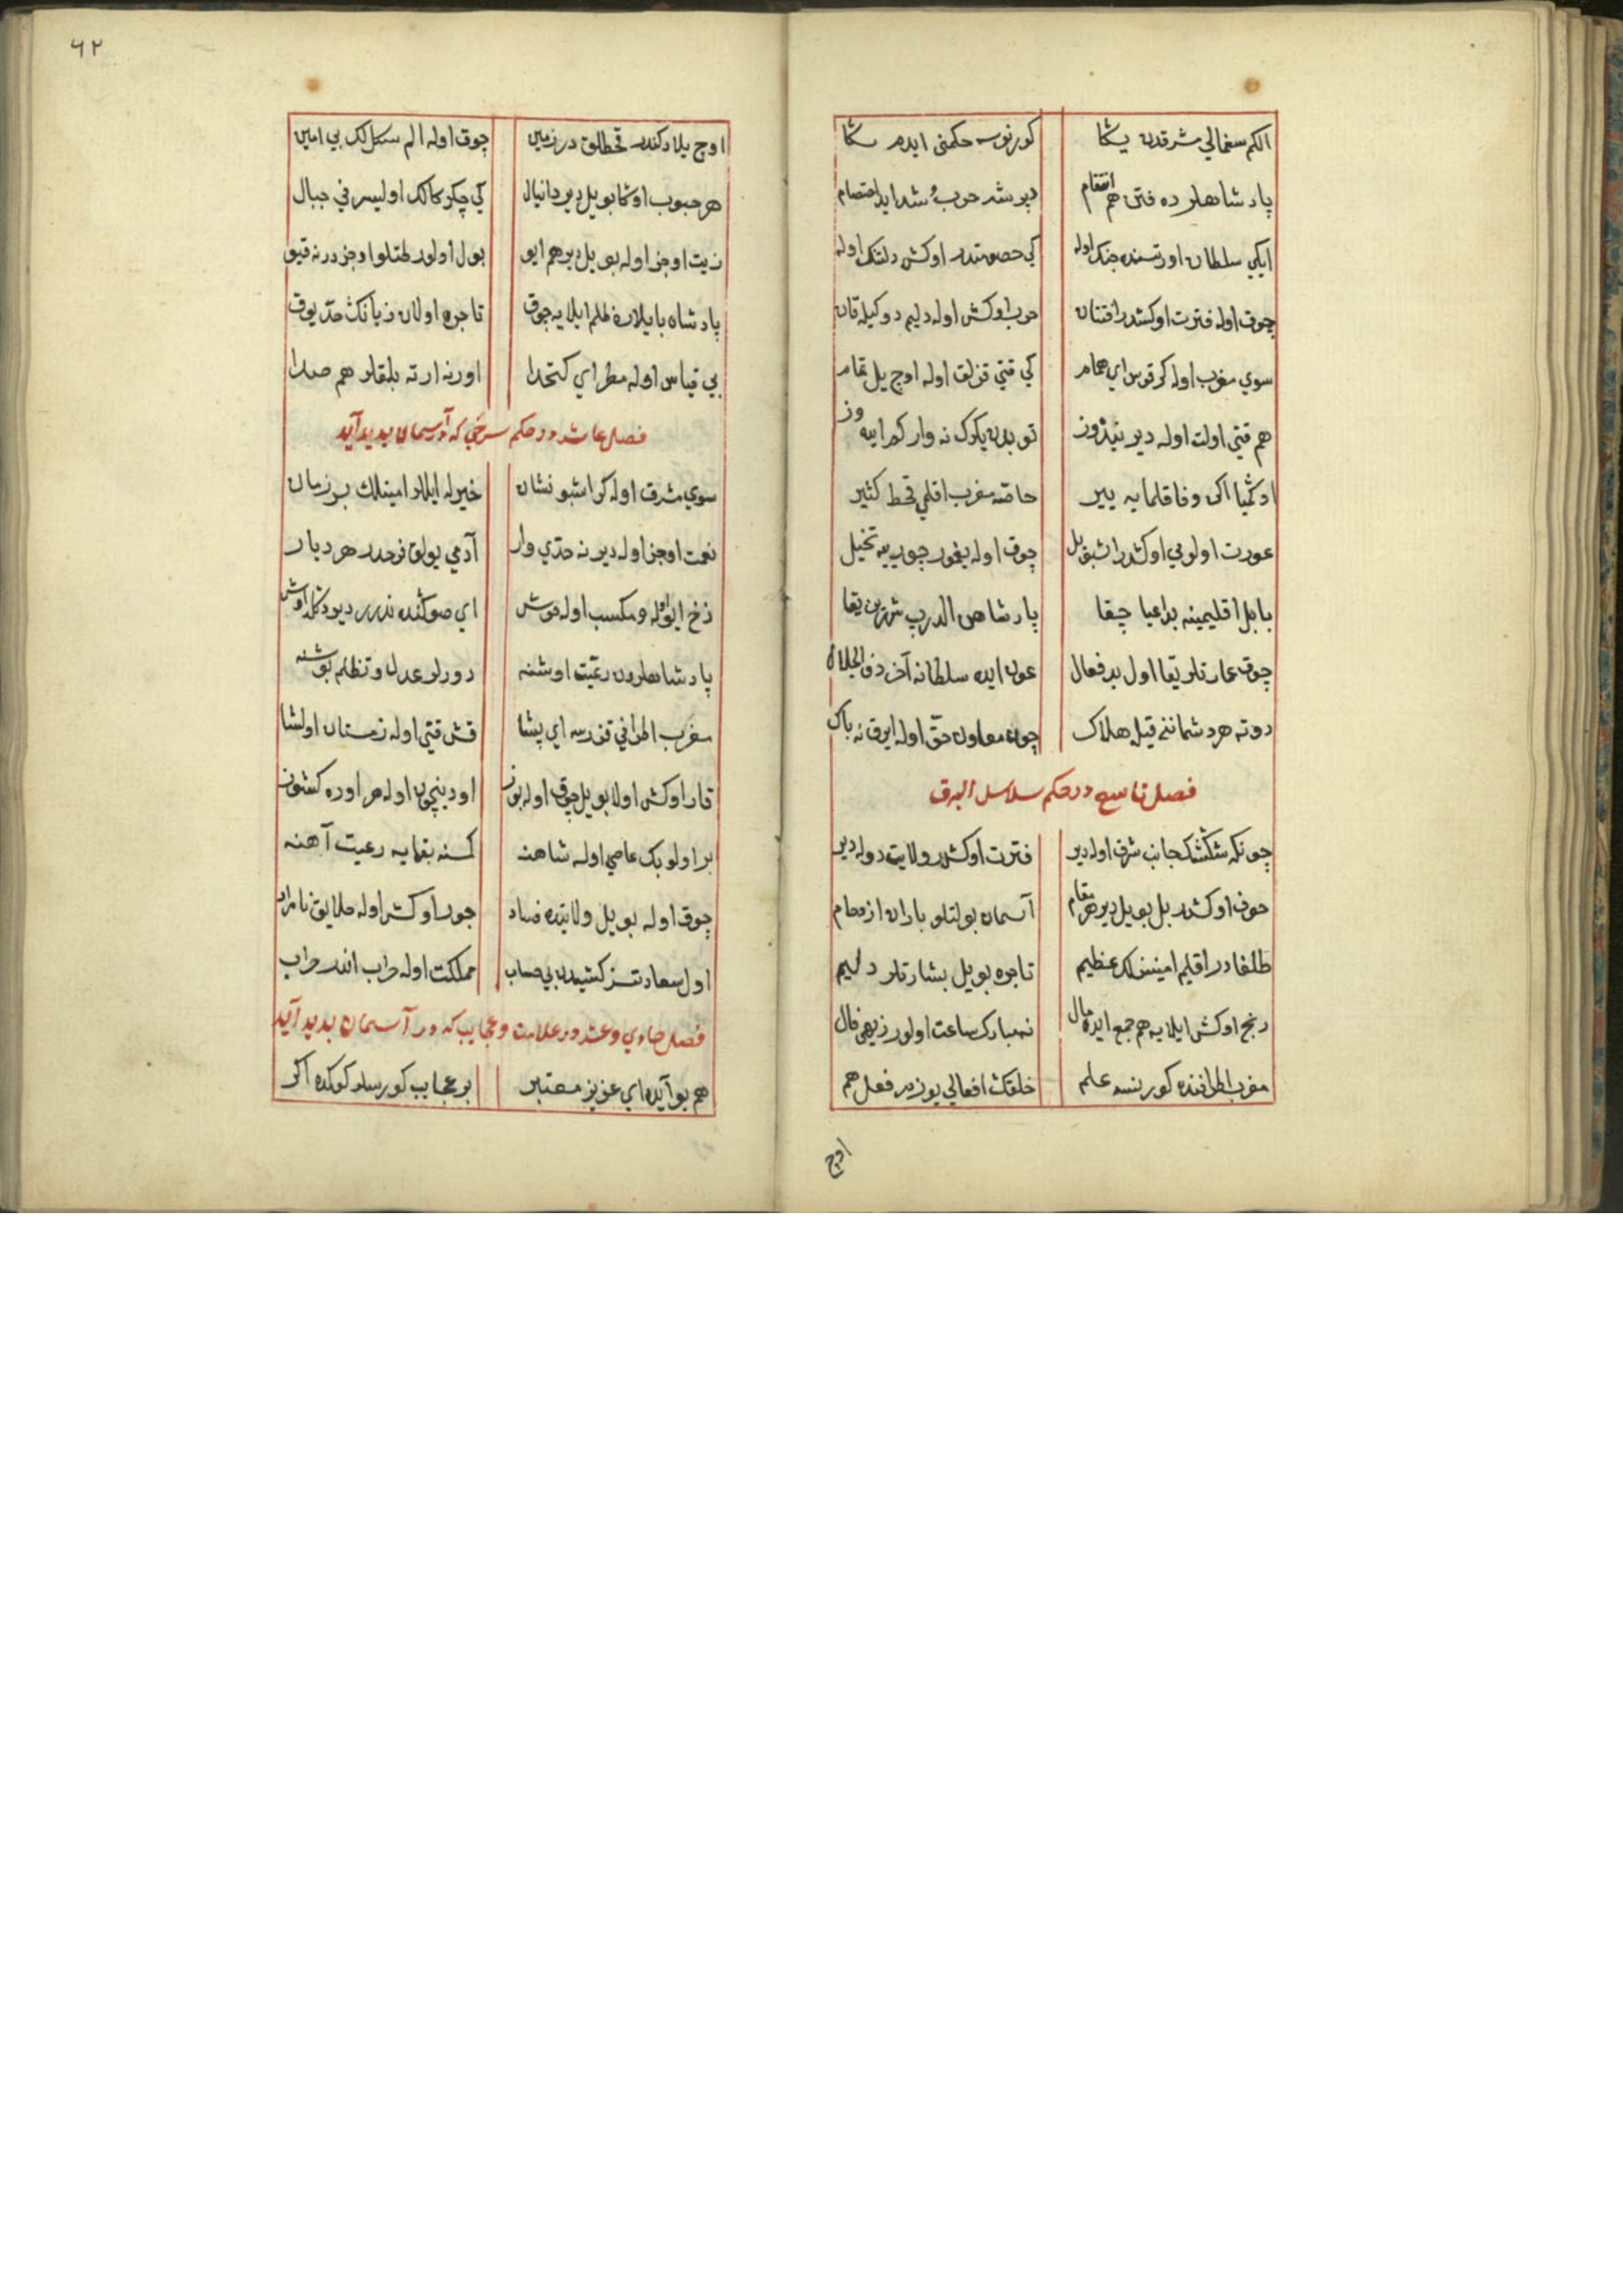 الکم سغمالي شرقدن یڭا کورنوسه حکمنی ایدم سڭا
پادشاهلرده فتن هم انتقام دیرشه حرب و شداید اختصام
ایکي سلطان اورتسنده جنك اوله کي خصومتدر اوکش دلتنك اوله
چوق اوله فترت اوکشدر افتتان حرب اوکش اوله دلیم دوکیله قان
سوي مغرب اوله کر قوس اي همام کي قتي قزلق اوله اوچ ییل تمام
هم قتي اولت اوله دیر
خاصه مغرب اقلمي قحط کثیر
عورت اولومي اوکشدر اشبو ییل چوق اوله یغمور
بابل اقلیمینه بداعیا چقا پادشاهن الدرب شهرین یقا
چوق عمارتلر یقا اول بدفعال عون ایده سلطانه آخر ذو الجلال
دوته هر دشماننی قیله هلاك چون معاون حق اوله ایرق نه باك
فصل تاسع در حکم سلاسل البرق
چونکه شڭشك جانب شرق اوله دیر فترت اوکشدر ولایت دوله دیر
خوف اوکشدر بل بو ییل دیر هر مقام آسمان بولتلو باران ازدحام
اقلیم امینلك عظیم تاجره بو ییل بشارتلر دلیم
رنج اوکش ایلایه هم جمع ایده مال نه مبارك ساعت اولور زیهی فال
مغرب اطرافنده کورینسه علم خلقك افعالي یوزدر فعل هم
اوچ
٦٢
اوچ ییلادکندر قحطلق در زمین چوق اوله الم سکل لك بي امین
هر حبوب اوڭا بو ییل دیر دانیال کي چکرکالك اولیسر في جبال
زیت اوجز اوله بو ییل دیر هم ایو بول اولور طتلو اوجزدر نه قیو
پادشاه بایلاره ظلم ایلایه چوق تاجره اولان زیانك حد یوق
بي قیاس اوله مطر اي کتخدا اورنه ارته بلقلر هم صدا
فصل عاشر در حکم سرخي که در آسمان بدید آید
سوي مشرق اوله کر اشبو نشان خیرله ایللر امینلك بر زمان
نعمت اوجز اوله دیر نه حدي وار آدمي یولق فرحدر هر دیار
نرخ ایو اوله و مکسب اوله خوش
پادشاهلردن رعیت اوشنه دورلو عدل و تظلم
مغرب اطرافي قزرسه اي پشا قش قتي اوله زمستان اولشا
قار اوکش اولا بو ییل چوق اوله بوز
بر اولو بك عاصي اوله شاهنه کمسنه بقمایه رعیت آهنه
چوق اوله بو ییل ولایتده فساد جور اوکش اوله خلایق نامراد
اول سعادتسز کشیدن بي حساب مملکت اوله خراب اندر خراب
فصل حادي و عشر در علامت و عجایب که در آسمان بدید آید
هم بو آیده اي عزیز معتبر بر عجایب کورسلر کوکده اکر